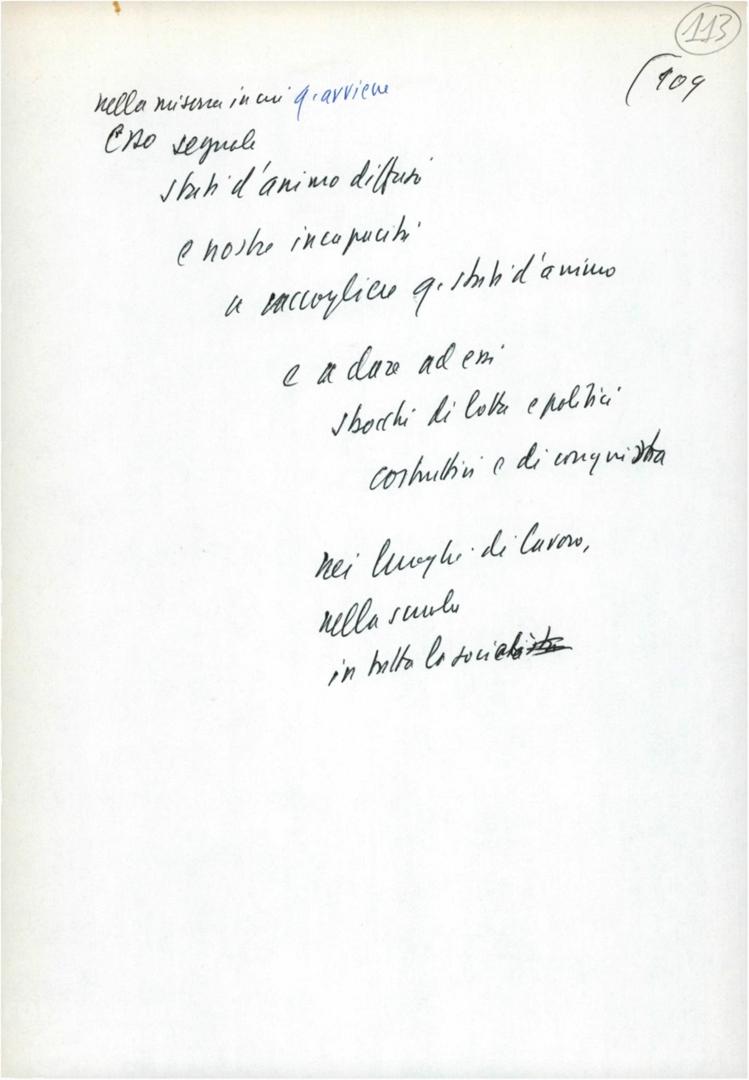 113
109
nella misura in cui q. avviene
Esso segnala
stati d'animo diffusi
e nostre incapacità
a raccogliere q. stati d'animo
e a dare ad essi
sbocchi di lotta e politici
costruttivi e di conquista
nei luoghi di lavoro,
nella scuola
in tutta la società